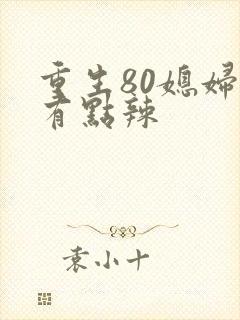 重生80媳婦
有點辣
袁小十